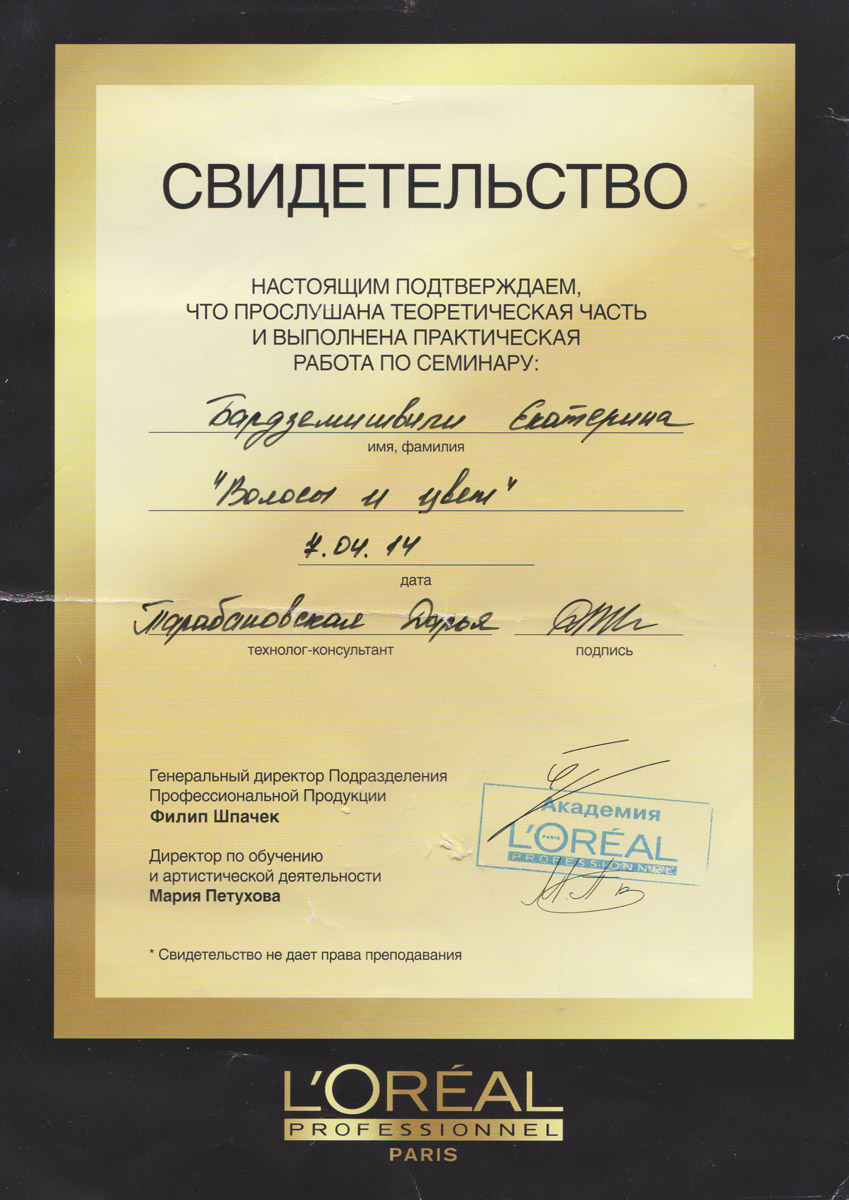 СВИДЕТЕЛЬСТВО
НАСТОЯЩИМ ПОДТВЕРЖДАЕМ,
ЧТО ПРОСЛУШАНА ТЕОРЕТИЧЕСКАЯ ЧАСТЬ
И ВЫПОЛНЕНА ПРАКТИЧЕСКАЯ
РАБОТА ПО СЕМИНАРУ:
Бардземишвили Екатерина
имя, фамилия
"Волосы и цвет"
7.04.14
дата
Тарабановская Дарья
технолог-консультант
подпись
Генеральный директор Подразделения
Профессиональной Продукции
Филип Шпачек
Академия
L'ORÉAL
PARIS
PROFESSIONNEL
Директор по обучению
и артистической деятельности
Мария Петухова
* Свидетельство не дает права преподавания
L'ORÉAL
PROFESSIONNEL
PARIS